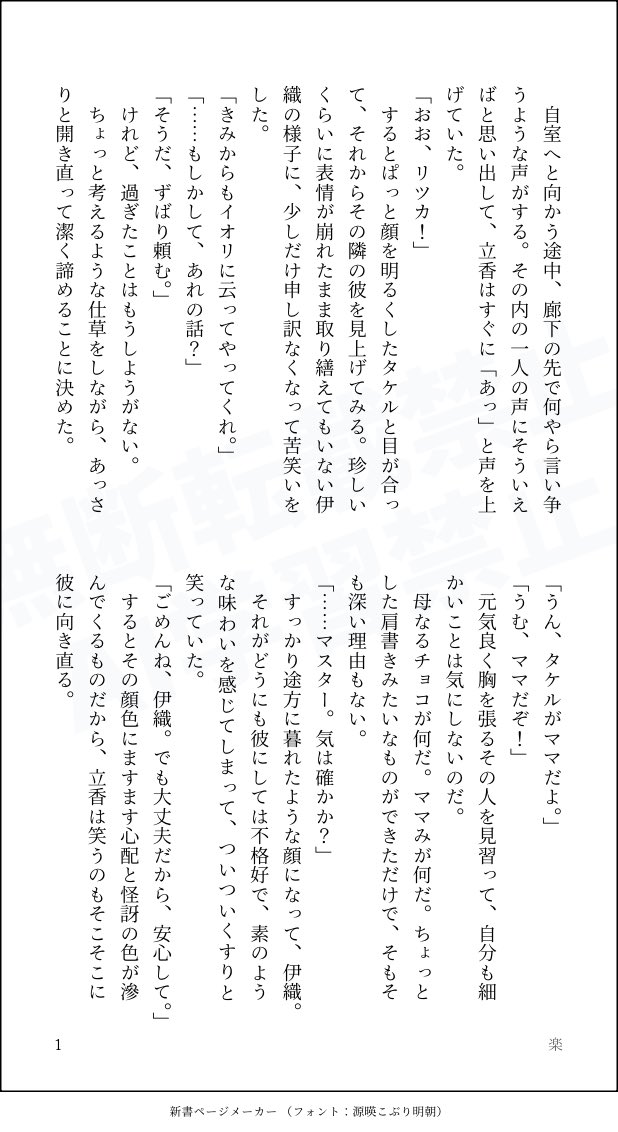 自室へと向かう途中、廊下の先で何やら言い争
うような声がする。その内の一人の声にそういえ
ばと思い出して、立香はすぐに「あっ」と声を上
げていた。
「おお、リツカ！」
するとぱっと顔を明るくしたタケルと目が合っ
て、それからその隣の彼を見上げてみる。珍しい
くらいに表情が崩れたまま取り繕えてもいない伊
織の様子に、少しだけ申し訳なくなって苦笑いを
した。
「きみからもイオリに云ってやってくれ。」
「……もしかして、あれの話？」
「そうだ、ずばり頼む。」
けれど、過ぎたことはもうしようがない。
ちょっと考えるような仕草をしながら、あっさ
りと開き直って潔く諦めることに決めた。
「うん、タケルがママだよ。」
「うむ、ママだぞ！」
元気良く胸を張るその人を見習って、自分も細
かいことは気にしないのだ。
母なるチョコが何だ。ママみが何だ。ちょっと
した肩書きみたいなものができただけで、そもそ
も深い理由もない。
「……マスター。気は確かか？」
すっかり途方に暮れたような顔になって、伊織。
それがどうにも彼にしては不格好で、素のよう
な味わいを感じてしまって、ついついくすりと
笑っていた。
「ごめんね、伊織。でも大丈夫だから、安心して。」
するとその顔色にますます心配と怪訝の色が滲
んでくるものだから、立香は笑うのもそこそこに
彼に向き直る。
楽
1
無断転載禁止
AI学習禁止
新書ページメーカー（フォント：源暎こぶり明朝）